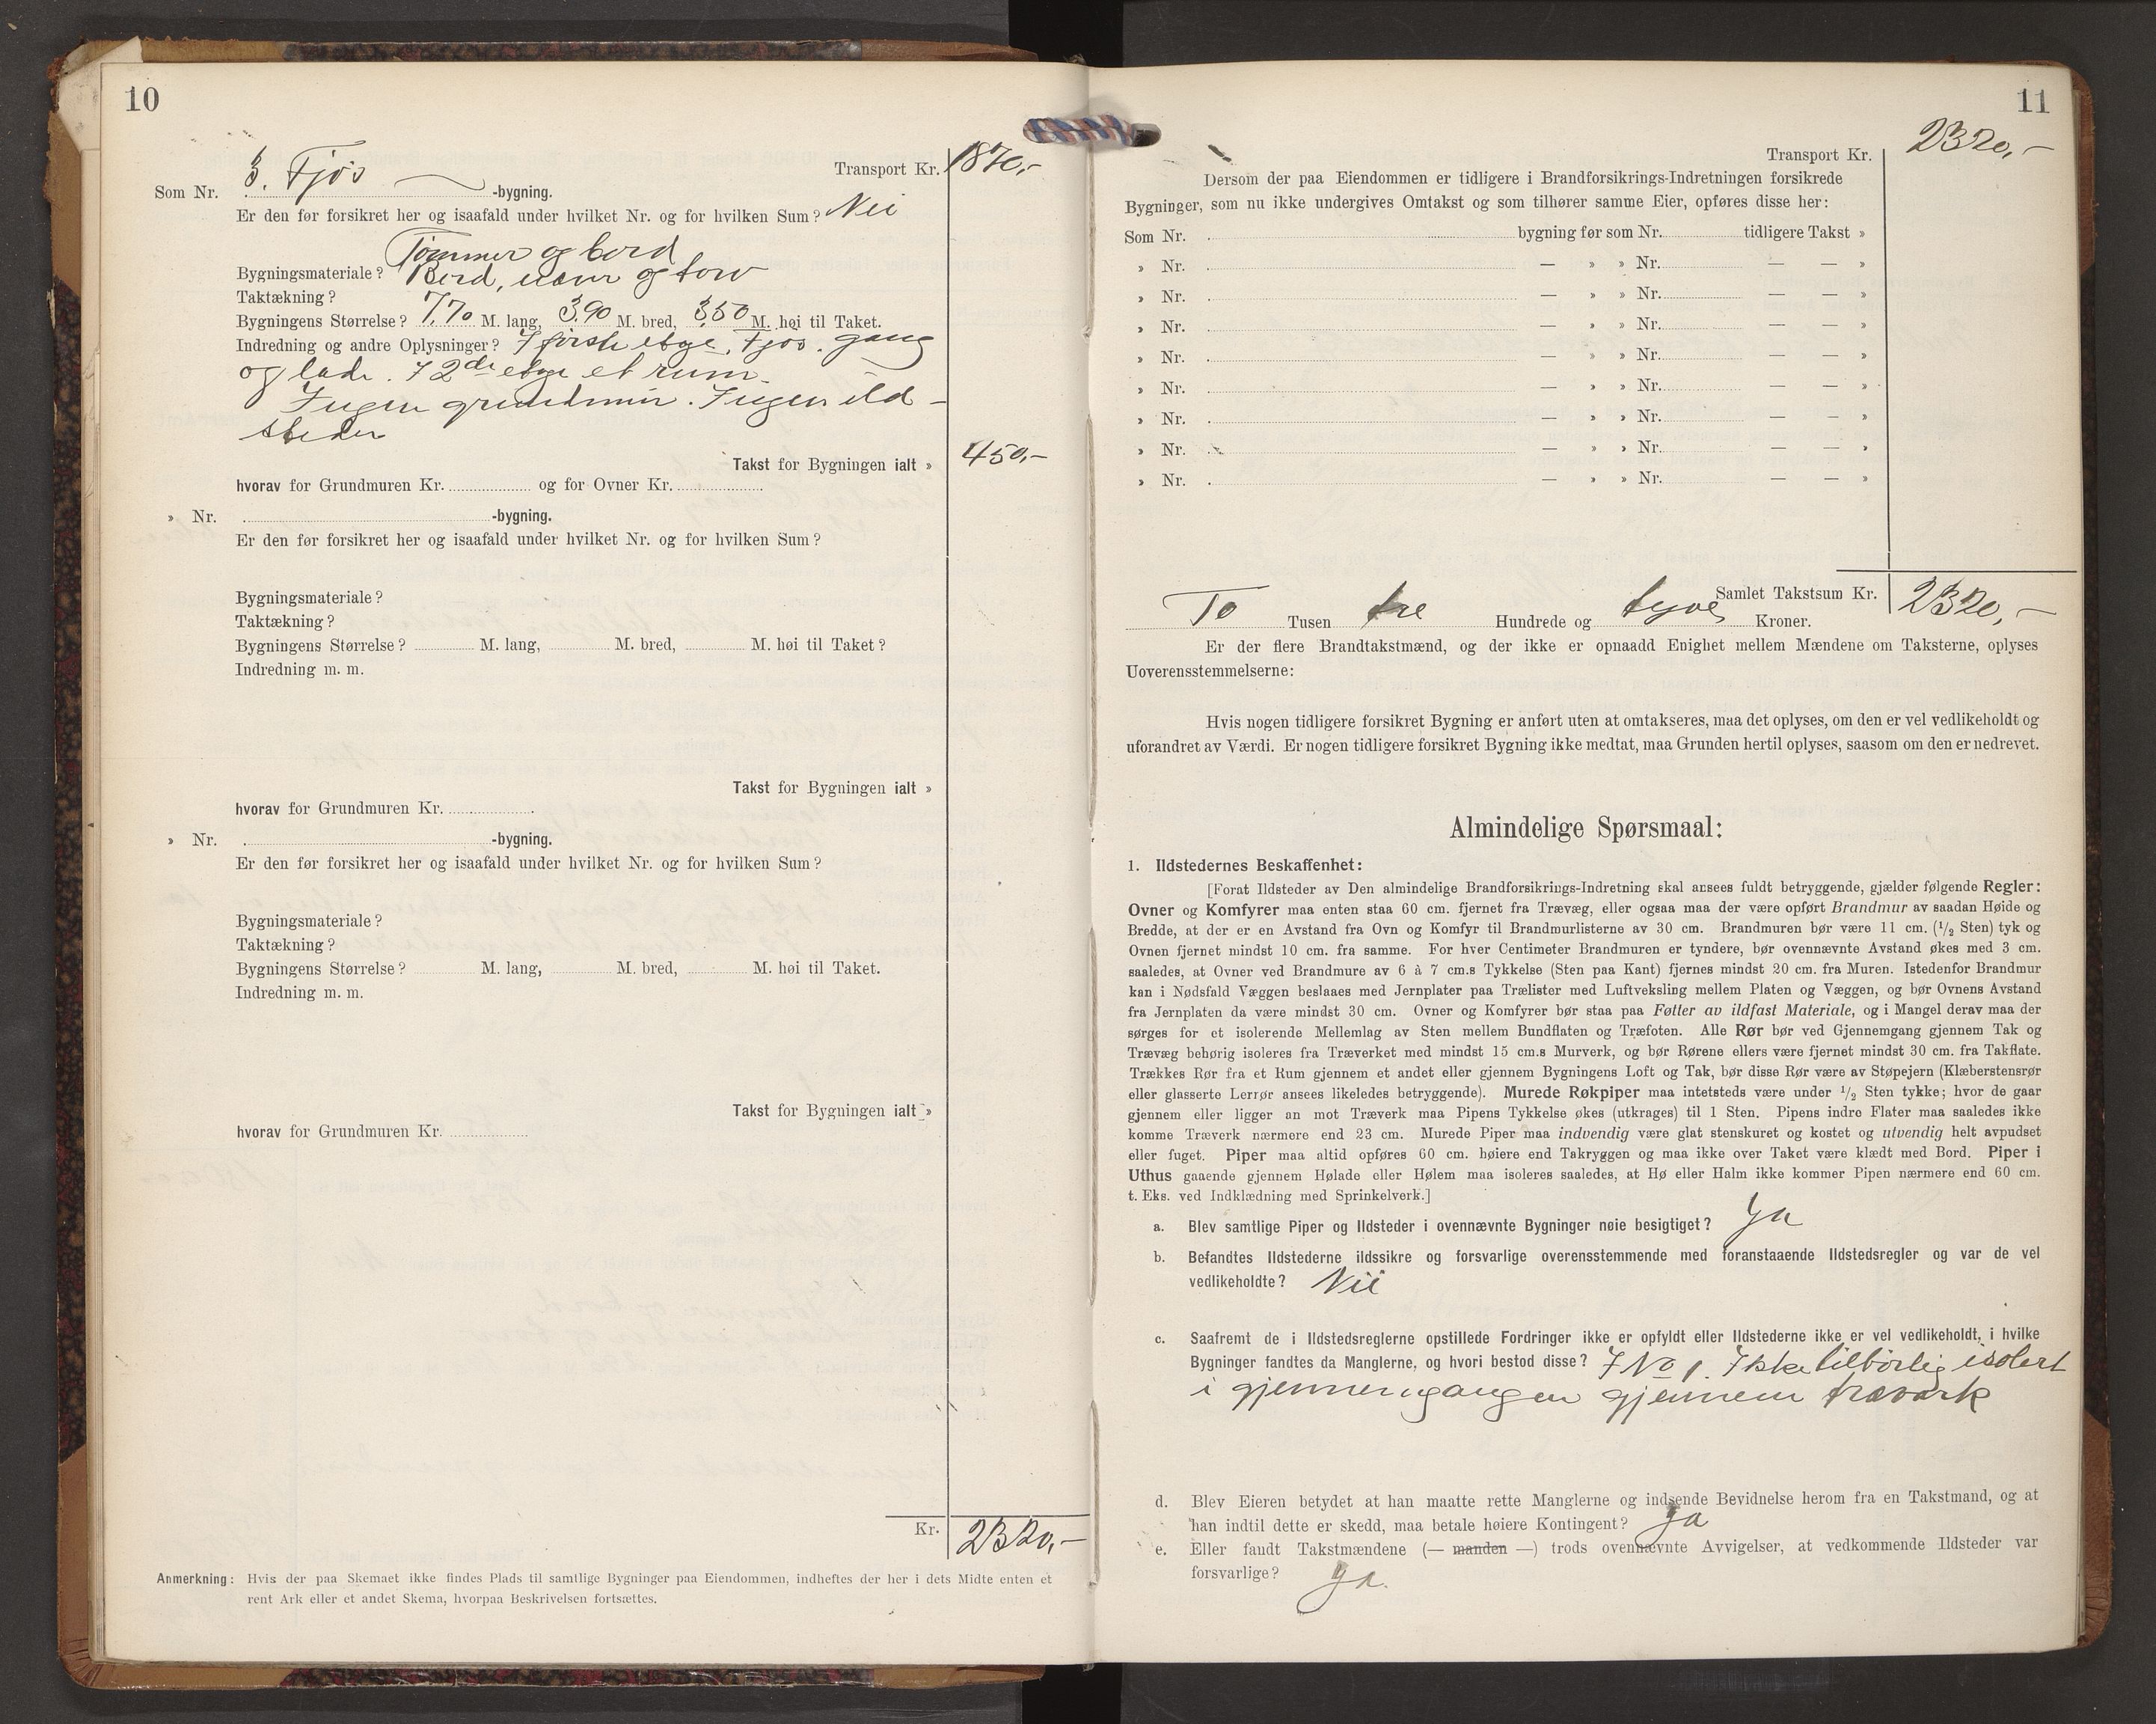 10
Transport Kr. 1870,-
Som Nr. 3. Fjøs -bygning.
Er den før forsikret her og isaafald under hvilket Nr. og for hvilken Sum? Nei
Tømmer og bord
Bygningsmateriale? Bord, næver og torv
Taktækning?
Bygningens Størrelse? 7,70 M. lang, 3,90 M. bred, 3,50 M. høi til Taket.
Indredning og andre Oplysninger? I første etage, Fjøs, gang
og lade. I 2den etage et rum.
Ingen grundmur. Ingen ild-
steder
Takst for Bygningen ialt » 450,-
hvorav for Grundmuren Kr. og for Ovner Kr.
» Nr. -bygning.
Er den før forsikret her og isaafald under hvilket Nr. og for hvilken Sum?
Bygningsmateriale?
Taktækning?
Bygningens Størrelse? M. lang, M. bred, M. høi til Taket?
Indredning m. m.
Takst for Bygningen ialt »
hvorav for Grundmuren Kr.
» Nr. -bygning.
Er den før forsikret her og isaafald under hvilket Nr. og for hvilken Sum?
Bygningsmateriale?
Taktækning?
Bygningens Størrelse? M. lang, M. bred, M. høi til Taket.
Indredning m. m.
Takst for Bygningen ialt »
hvorav for Grundmuren Kr.
Kr. 2320,-
Anmerkning: Hvis der paa Skemaet ikke findes Plads til samtlige Bygninger paa Eiendommen, indheftes der her i dets Midte enten et
rent Ark eller et andet Skema, hvorpaa Beskrivelsen fortsættes.
11
Transport Kr. 2320,-
Dersom der paa Eiendommen er tidligere i Brandforsikrings-Indretningen forsikrede
Bygninger, som nu ikke undergives Omtakst og som tilhører samme Eier, opføres disse her:
Som Nr. bygning før som Nr. tidligere Takst »
» Nr. — » » Nr. — — »
» Nr. — » » Nr. — — »
» Nr. — » » Nr. — — »
» Nr. — » » Nr. — — »
» Nr. — » » Nr. — — »
» Nr. — » » Nr. — — »
» Nr. — » » Nr. — — »
» Nr. — » » Nr. — — »
Samlet Takstsum Kr. 2320,-
To Tusen tre Hundrede og tyve Kroner.
Er der flere Brandtakstmænd, og der ikke er opnaadd Enighet mellem Mændene om Taksterne, oplyses
Uoverensstemmelserne:
Hvis nogen tidligere forsikret Bygning er anført uten at omtakseres, maa det oplyses, om den er vel vedlikeholdt og
uforandret av Værdi. Er nogen tidligere forsikret Bygning ikke medtat, maa Grunden hertil oplyses, saasom om den er nedrevet.
Almindelige Spørsmaal:
1. Ildstedernes Beskaffenhet:
[Forat Ildsteder av Den almindelige Brandforsikrings-Indretning skal ansees fuldt betryggende, gjælder følgende Regler:
Ovner og Komfyrer maa enten staa 60 cm. fjernet fra Trævæg, eller ogsaa maa der være opført Brandmur av saadan Høide og
Bredde, at der er en Avstand fra Ovn og Komfyr til Brandmurlisterne av 30 cm. Brandmuren bør være 11 cm. (1/2 Sten) tyk og
Ovnen fjernet mindst 10 cm. fra samme. For hver Centimeter Brandmuren er tyndere, bør ovennævnte Avstand økes med 3 cm.
saaledes, at Ovner ved Brandmure av 6 à 7 cm.s Tykkelse (Sten paa Kant) fjernes mindst 20 cm. fra Muren. Istedenfor Brandmur
kan i Nødsfald Væggen beslaaes med Jernplater paa Trælister med Luftveksling mellem Platen og Væggen, og bør Ovnens Avstand
fra Jernplaten da være mindst 30 cm. Ovner og Komfyrer bør staa paa Føtter av ildfast Materiale, og i Mangel derav maa der
sørges for et isolerende Mellemlag av Sten mellem Bundflaten og Træfoten. Alle Rør bør ved Gjennemgang gjennem Tak og
Trævæg behørig isoleres fra Træverket med mindst 15 cm.s Murverk, og bør Rørene ellers være fjernet mindst 30 cm. fra Takflate.
Trækkes Rør fra et Rum gjennem et andet eller gjennem Bygningens Loft og Tak, bør disse Rør være av Støpejern (Klæberstensrør
eller glasserte Lerrør ansees likeledes betryggende). Murede Røkpiper maa intetsteds være under 1/2 Sten tykke; hvor de gaar
gjennem eller ligger an mot Træverk maa Pipens Tykkelse økes (utkrages) til 1 Sten. Pipens indre Flater maa saaledes ikke
komme Træverk nærmere end 23 cm. Murede Piper maa indvendig være glat stenskuret og kostet og utvendig helt avpudset
eller fuget. Piper maa altid opføres 60 cm. høiere end Takryggen og maa ikke over Taket være klædt med Bord. Piper i
Uthus gaaende gjennem Hølade eller Hølem maa isoleres saaledes, at Hø eller Halm ikke kommer Pipen nærmere end 60 cm.
t. Eks. ved Indklædning med Sprinkelverk.]
a. Blev samtlige Piper og Ildsteder i ovennævnte Bygninger nøie besigtiget? Ja
b. Befandtes Ildstederne ildssikre og forsvarlige overensstemmende med foranstaaende Ildstedsregler og var de vel
vedlikeholdte? Nei
c. Saafremt de i Ildstedsreglerne opstillede Fordringer ikke er opfyldt eller Ildstederne ikke er vel vedlikeholdt, i hvilke
Bygninger fandtes da Manglerne, og hvori bestod disse? I No 1. Ikke tilbørlig isolert
i gjennemgangen gjennem træværk
d. Blev Eieren betydet at han maatte rette Manglerne og indsende Bevidnelse herom fra en Takstmand, og at
han indtil dette er skedd, maa betale høiere Kontingent? Ja
e. Eller fandt Takstmændene (— manden —) trods ovennævnte Avvigelser, at vedkommende Ildsteder var
forsvarlige? Ja.